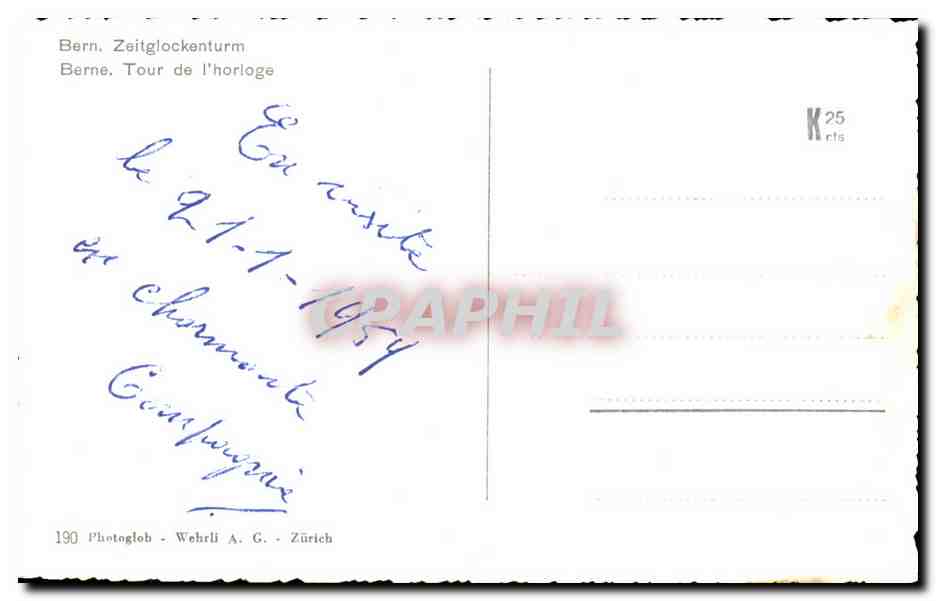 Bern. Zeitglockenturm
Berne. Tour de l'horloge
K 25
cts
En visite
le 21-1-1954
en charmante
Compagnie
CPAPHIL
190 Photoglob - Wehrli A. G. - Zürich